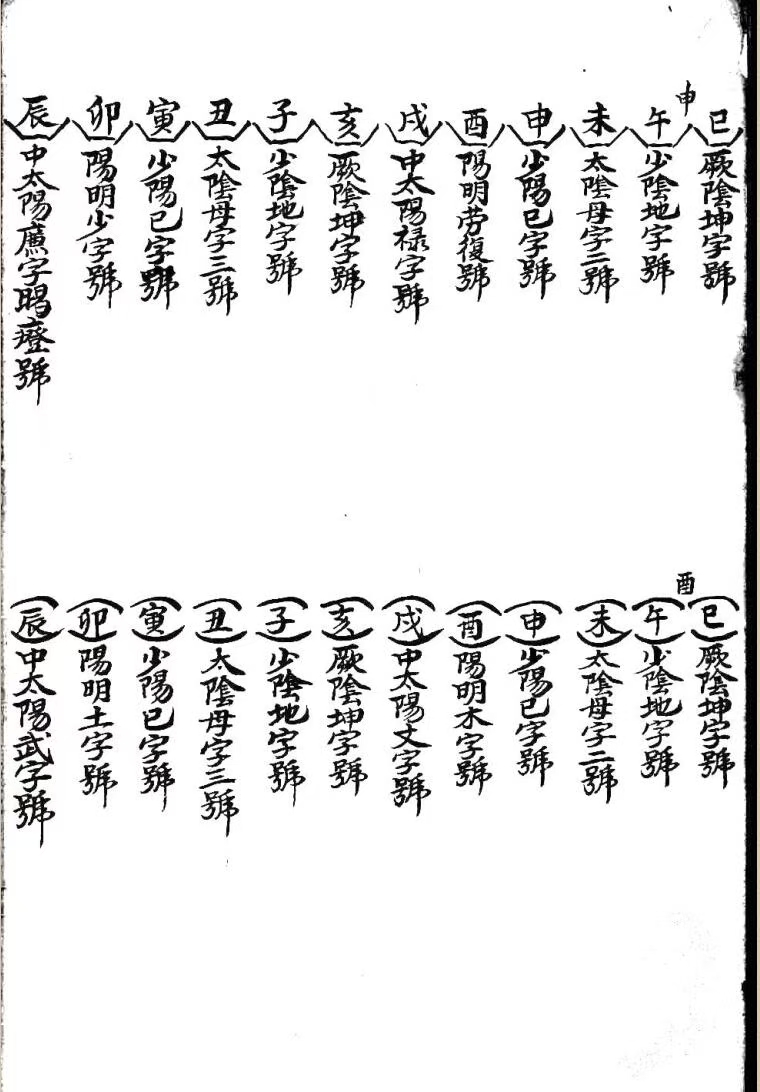 申
巳 厥陰坤字號
午 少陰地字號
未 太陰母字二號
申 少陽巳字號
酉 陽明劳復號
戌 中太陽禄字號
亥 厥陰坤字號
子 少陰地字號
丑 太陰母字三號
寅 少陽巳字號
卯 陽明少字號
辰 中太陽廌字暍瘞號
酉
巳 厥陰坤字號
午 少陰地字號
未 太陰母字二號
申 少陽巳字號
酉 陽明木字號
戌 中太陽文字號
亥 厥陰坤字號
子 少陰地字號
丑 太陰母字三號
寅 少陽巳字號
卯 陽明土字號
辰 中太陽武字號